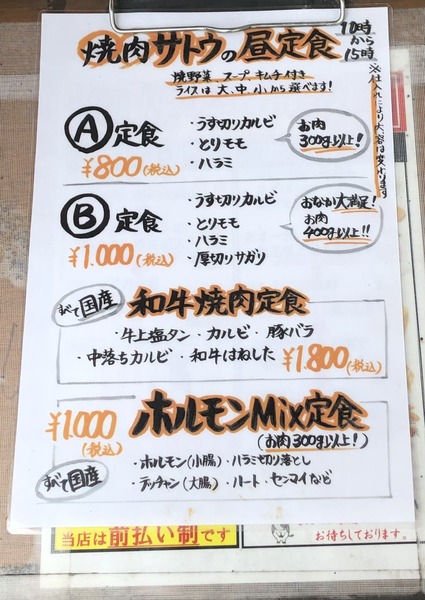 焼肉サトウの昼定食
10時
から
15時
焼野菜、スープ、キムチ付き
ライスは大、中、小から選べます!
※仕入れにより内容は変わります
A定食
¥800(税込)
・うす切りカルビ
・とりモモ
・ハラミ
お肉
300g以上!
B定食
¥1.000(税込)
・うす切りカルビ
・とりモモ
・ハラミ
・厚切りサガリ
おなか大満足!
お肉
400g以上!!
すべて国産
和牛焼肉定食
・牛上塩タン・カルビ・豚バラ
・中落ちカルビ・和牛はねした
¥1.800(税込)
¥1.000
(税込)
ホルモンMix定食
(お肉300g以上!)
すべて国産
・ホルモン(小腸)・ハラミ切り落とし
・テッチャン(大腸)・ハート・センマイなど
当店は前払い制です
お待ちしております。